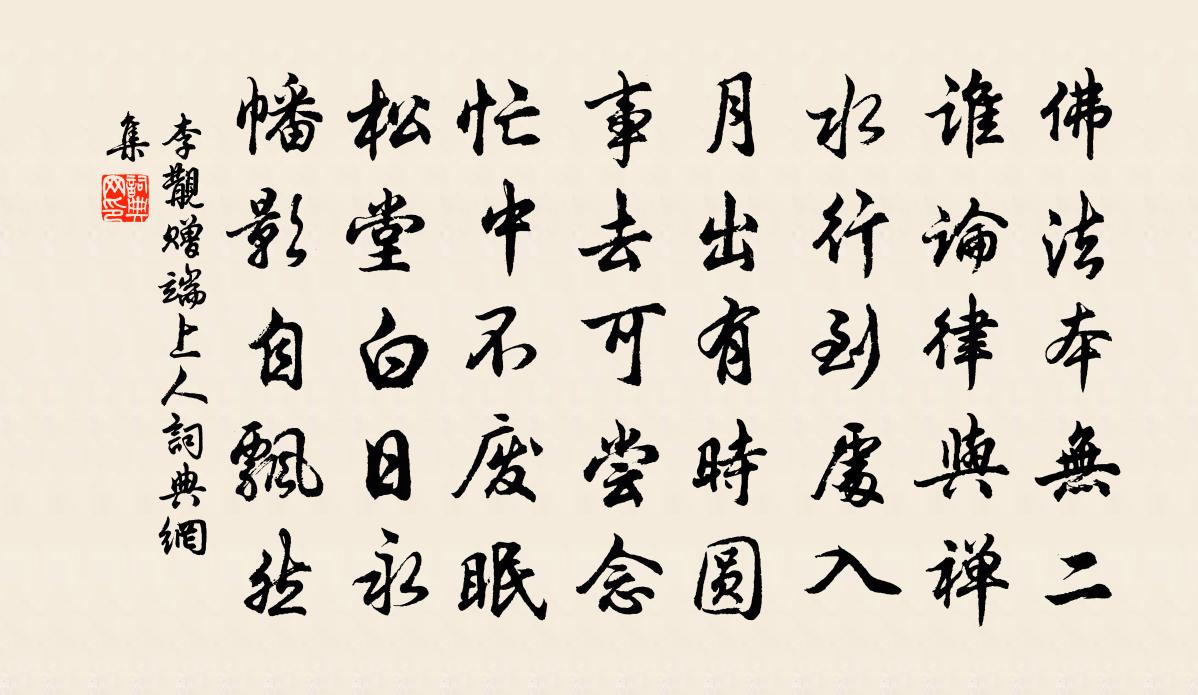 佛法本無二
誰論律與禪
水行到處入
月出有時圓
事去可嘗念
忙中不廢眠
松堂白日永
幡影自飄然
李覯贈端上人詞典網
集
詞典
网印